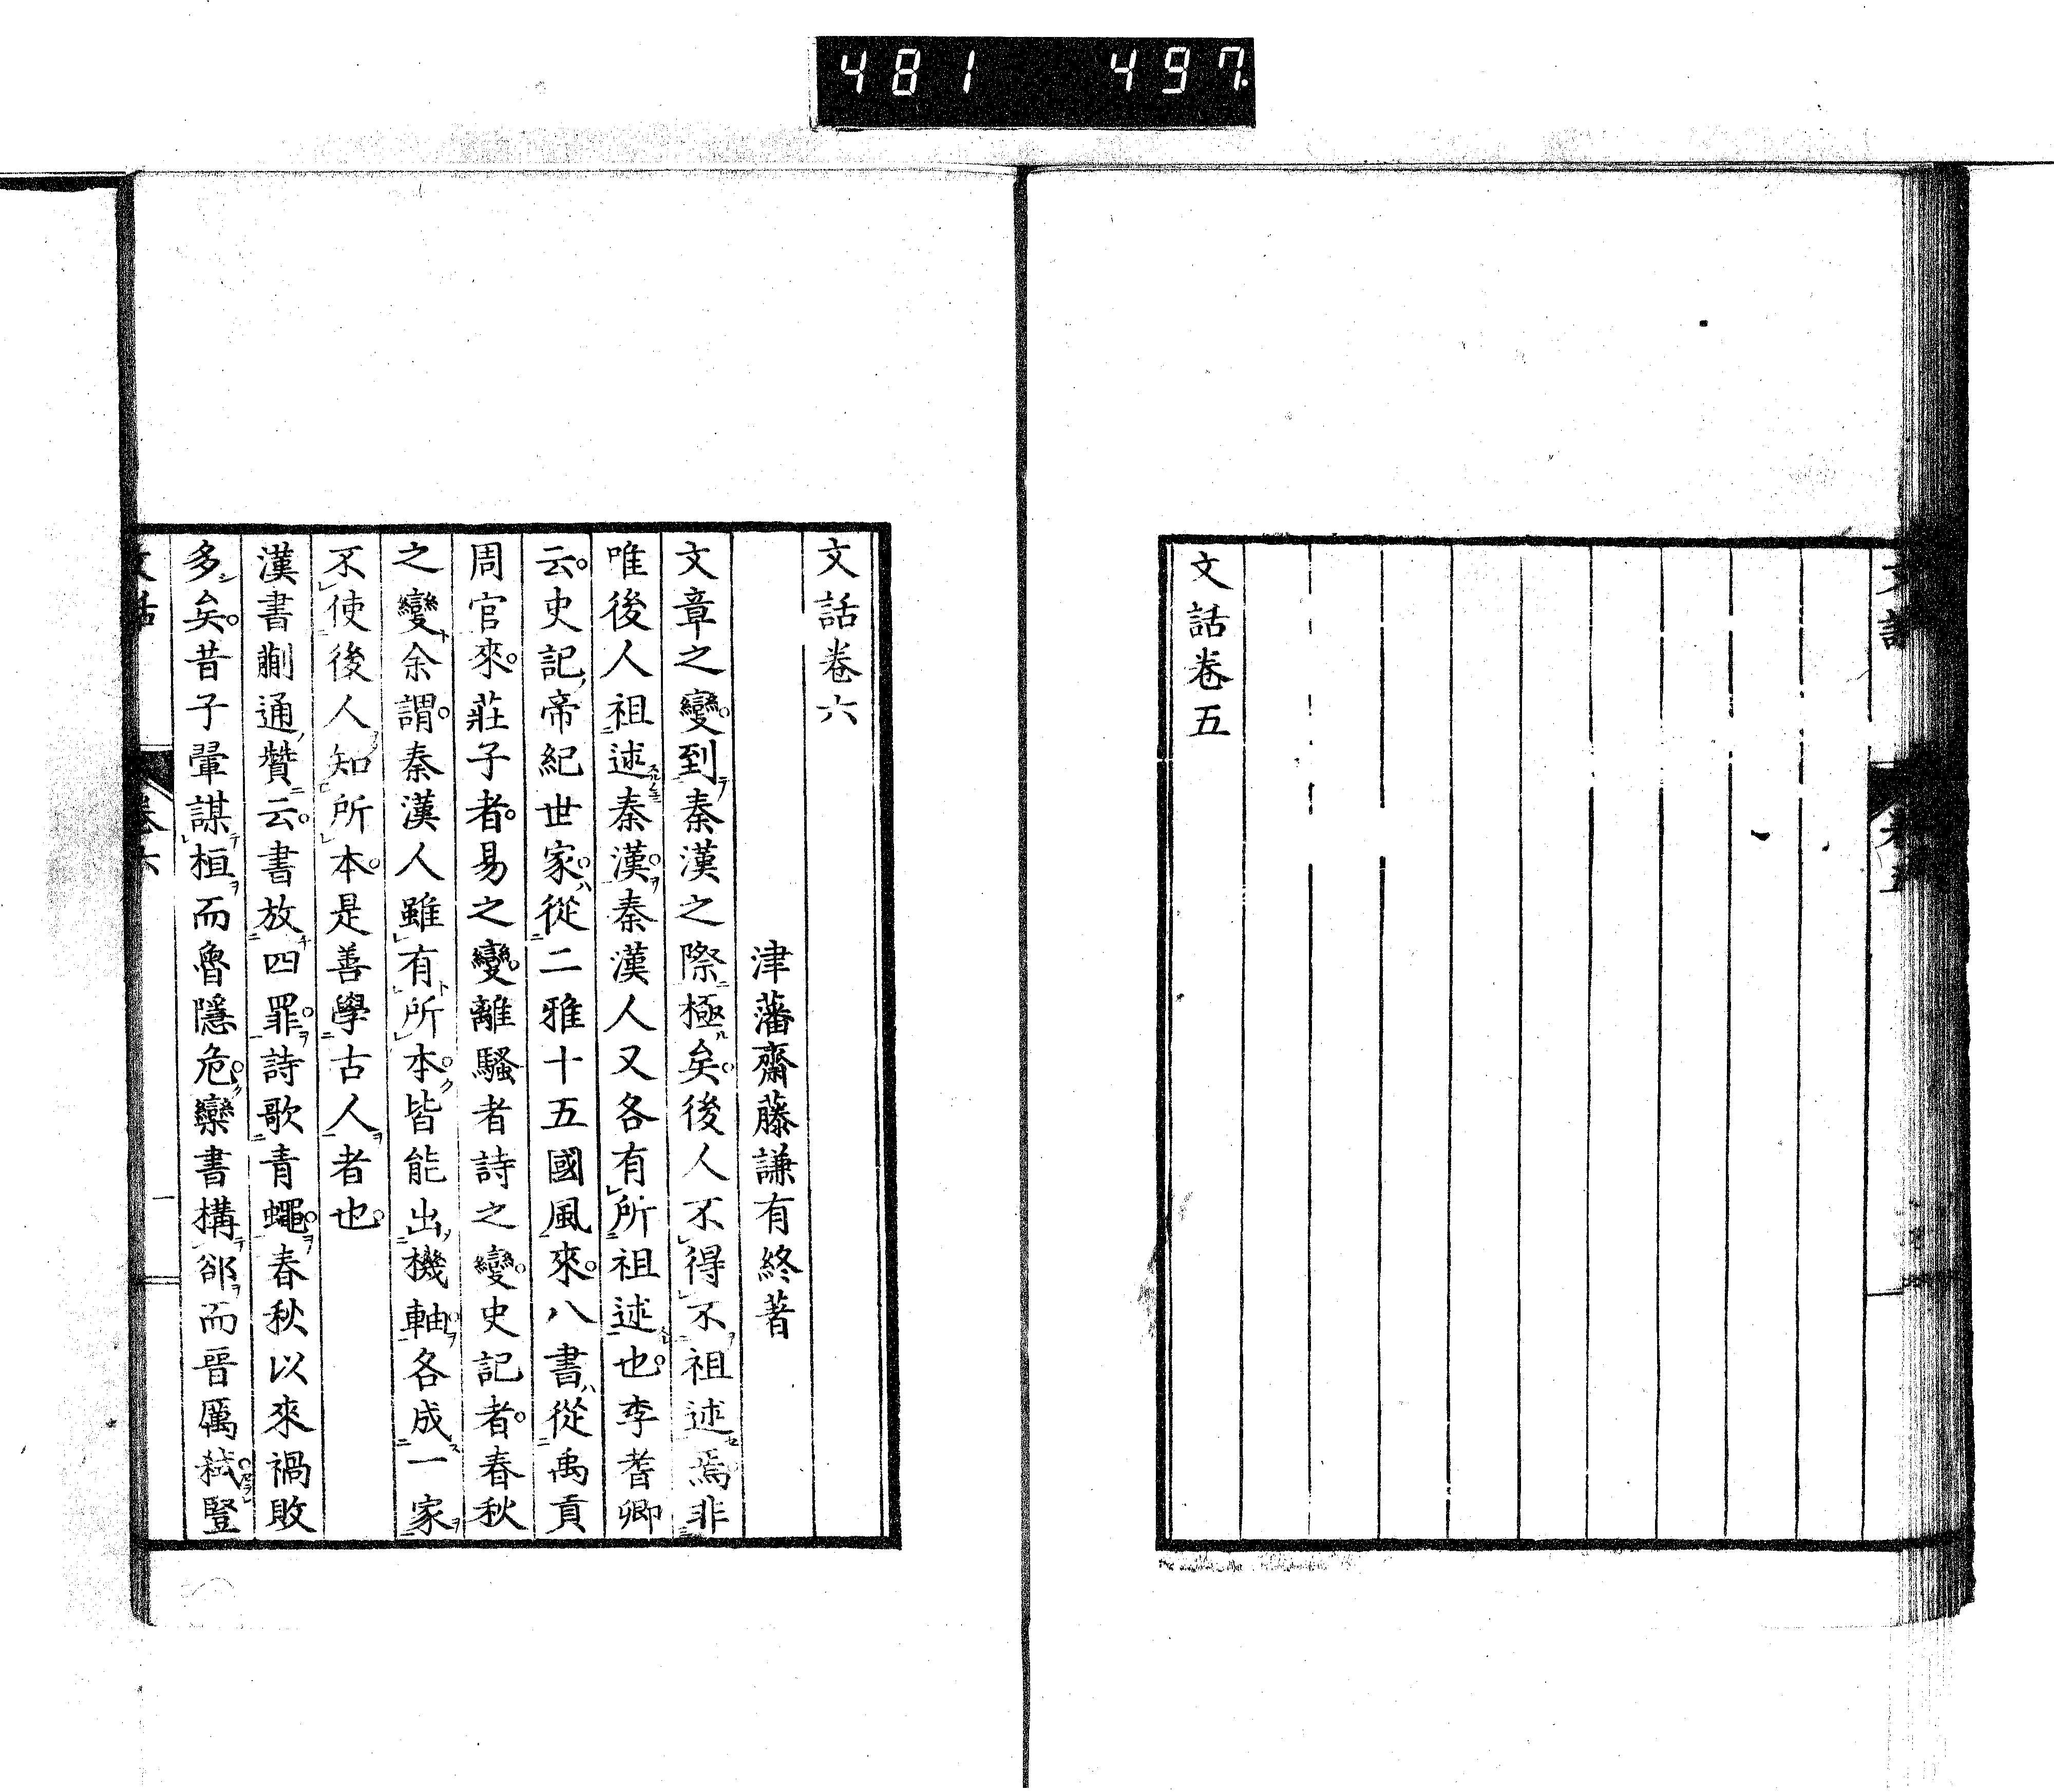 481 497
文話卷五
文話卷六
津藩齋藤謙有終著
文章之變到秦漢之際極矣後人不得不祖述焉非
唯後人祖述秦漢秦漢人又各有所祖述也李耆卿
云史記帝紀世家從二雅十五國風來八書從禹貢
周官來莊子者易之變離騷者詩之變史記者春秋
之變余謂秦漢人雖有所本皆能出機軸各成一家
不使後人知所本是善學古人者也
漢書蒯通贊云書放四罪詩歌青蠅春秋以來禍敗
多矣昔子翬謀桓而魯隱危欒書構郤而晉厲弑豎
文話 卷六 一